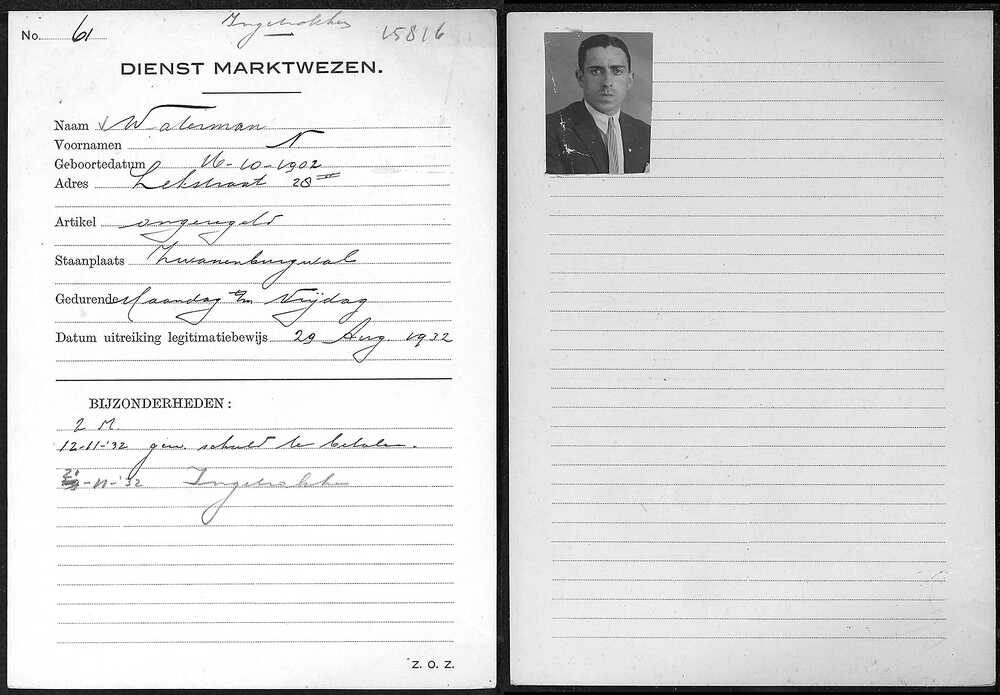 No. 61 Ingetrokken 15816
DIENST MARKTWEZEN.
Naam Waterman
Voornamen N
Geboortedatum 16-10-1902
Adres Lekstraat 28 II
Artikel ongeregeld
Staanplaats Zwanenburgwal
Gedurende Maandag t/m Vrijdag
Datum uitreiking legitimatiebewijs 29 Aug. 1932
BIJZONDERHEDEN:
2 M.
12-11-'32 gew. schuld te betalen.
-11-'32 Ingetrokken
Z. O. Z.